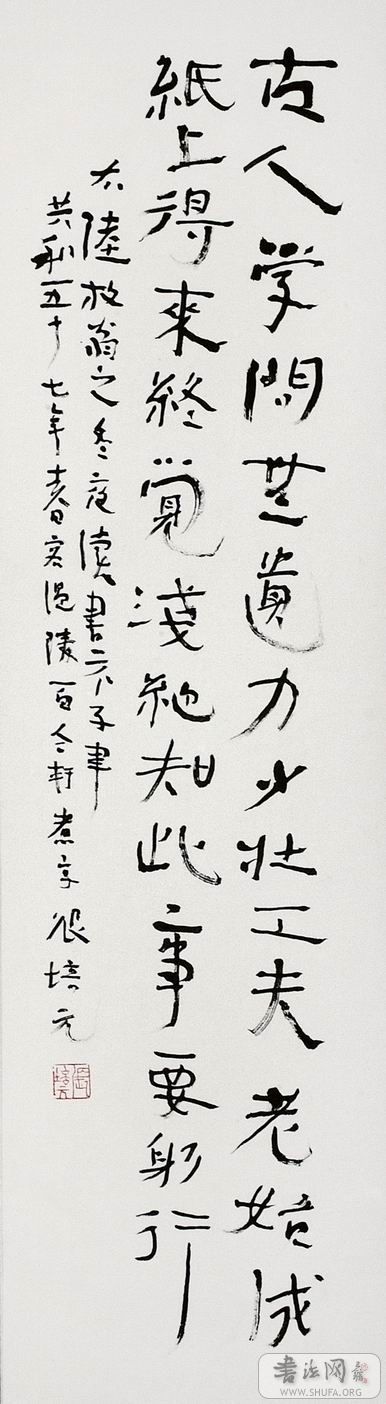 古人学問無遺力少壯工夫老始成
紙上得來終覺淺絶知此事要躬行
右陸放翁之冬夜讀書示子聿
共和五十七年春客陵百合軒煮字張培元
書法网
WWW.SHUFA.ORG